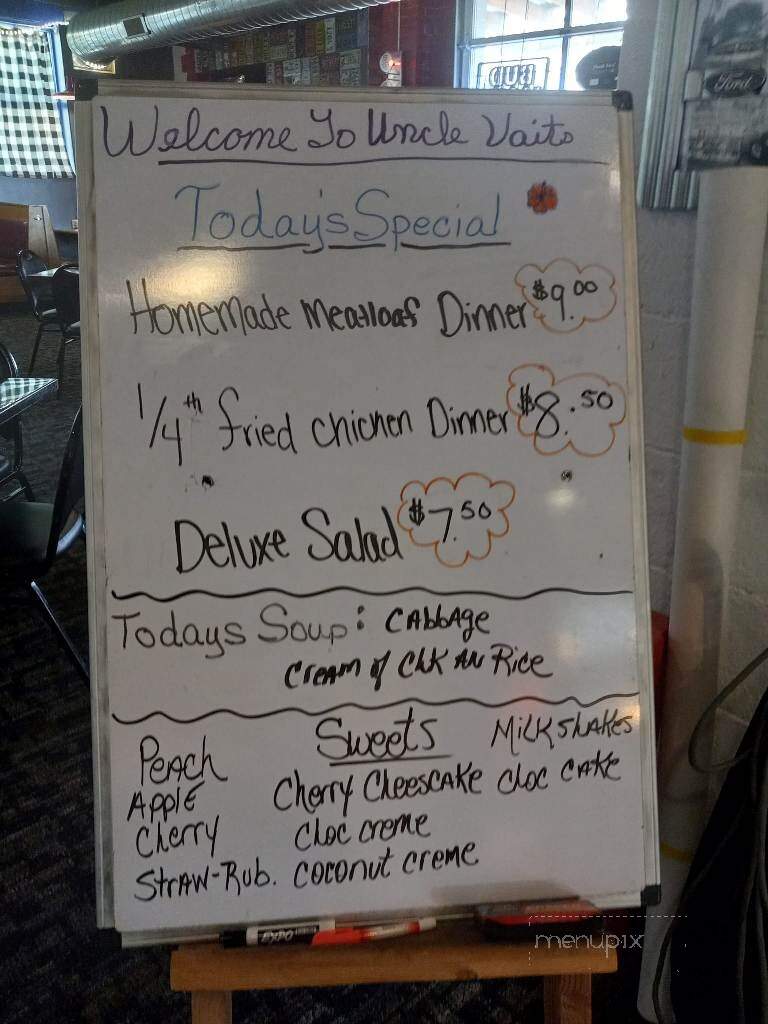 BUD
Ford
Welcome To Uncle Vaito
Today's Special
Homemade Meatloaf Dinner $9.00
1/4th fried chicken Dinner $8.50
Deluxe Salad $7.50
Todays Soup: CAbbAge
CreAm of ChK AN Rice
Sweets
MilkshAkes
PeAch
Apple
Cherry CheescAke
choc cAke
Cherry
choc creme
StrAw-Rub.
coconut creme
EXPO
menupix